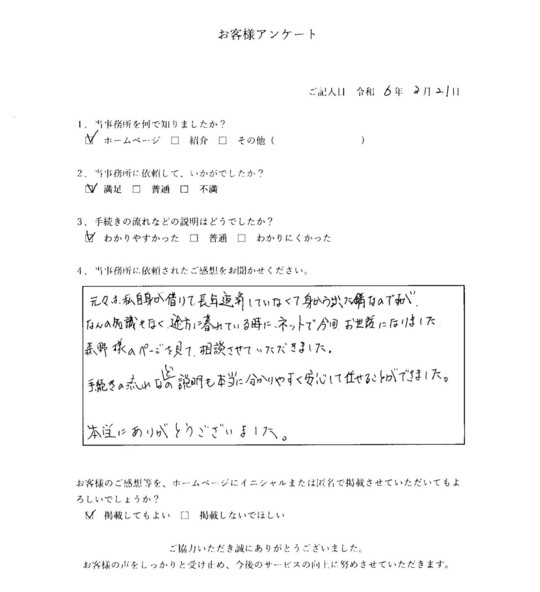 お客様アンケート
ご記入日 令和 6年 2月 21日
1．当事務所を何で知りましたか？
☑ ホームページ □ 紹介 □ その他（ ）
2．当事務所に依頼して、いかがでしたか？
☑ 満足 □ 普通 □ 不満
3．手続きの流れなどの説明はどうでしたか？
☑ わかりやすかった □ 普通 □ わかりにくかった
4．当事務所に依頼されたご感想をお聞かせください。
元々は、私自身が借りて、長年返済していなくて身から出た錆なのですが、
なんの知識もなく、途方に暮れている時に、ネットで今回お世話になりました
様のページを見て、相談させていただきました。
手続きの流れなどの説明も本当に分かりやすく安心して任せることができました。
本当にありがとうございました。
お客様のご感想等を、ホームページにイニシャルまたは匿名で掲載させていただいてもよ
ろしいでしょうか？
☑ 掲載してもよい □ 掲載しないでほしい
ご協力いただき誠にありがとうございました。
お客様の声をしっかりと受け止め、今後のサービスの向上に努めさせていただきます。